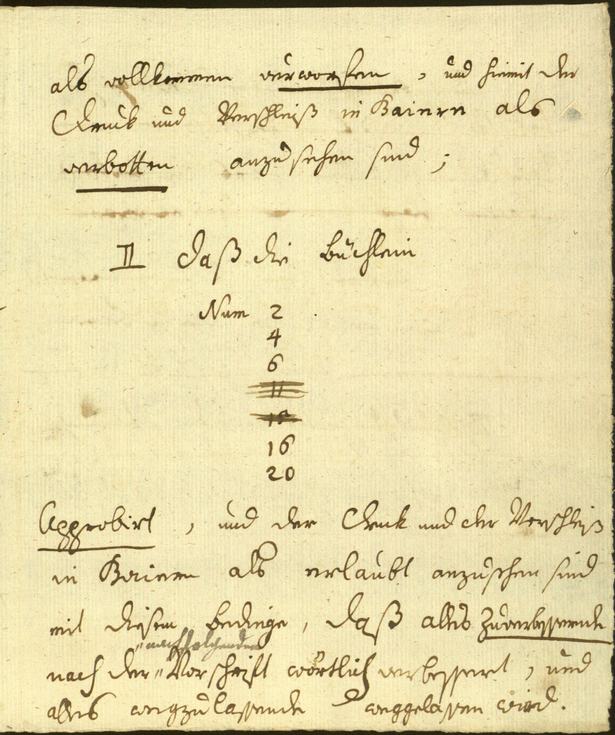 als vollkommen verworfen, und hiemit der
Druck und Verschleiß in Baiern als
verbotten anzusehen sind;
II daß die Büchlein
Num 2
4
6
11
15
16
20
Approbirt, und der Druck und der Verschleiß
in Baiern als erlaubt anzusehen sind
mit diesem bedinge, daß alles Zuverbessernde
nachfolgenden
nach der Vorschrift wörtlich verbessert, und
alles wegzulassende weggelassen wird.